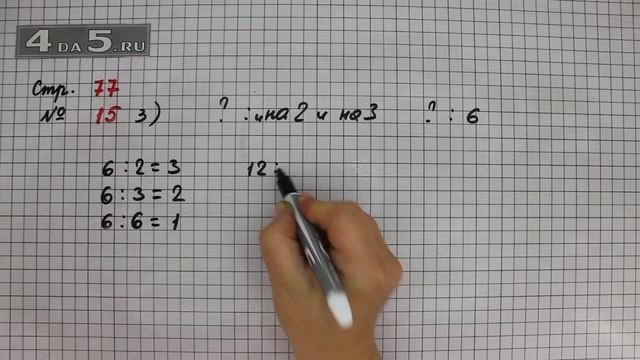 4 DA 5.RU
Стр. 77
№ 15 3) ? : и на 2 и на 3 ? : 6
6 : 2 = 3 12 :
6 : 3 = 2
6 : 6 = 1